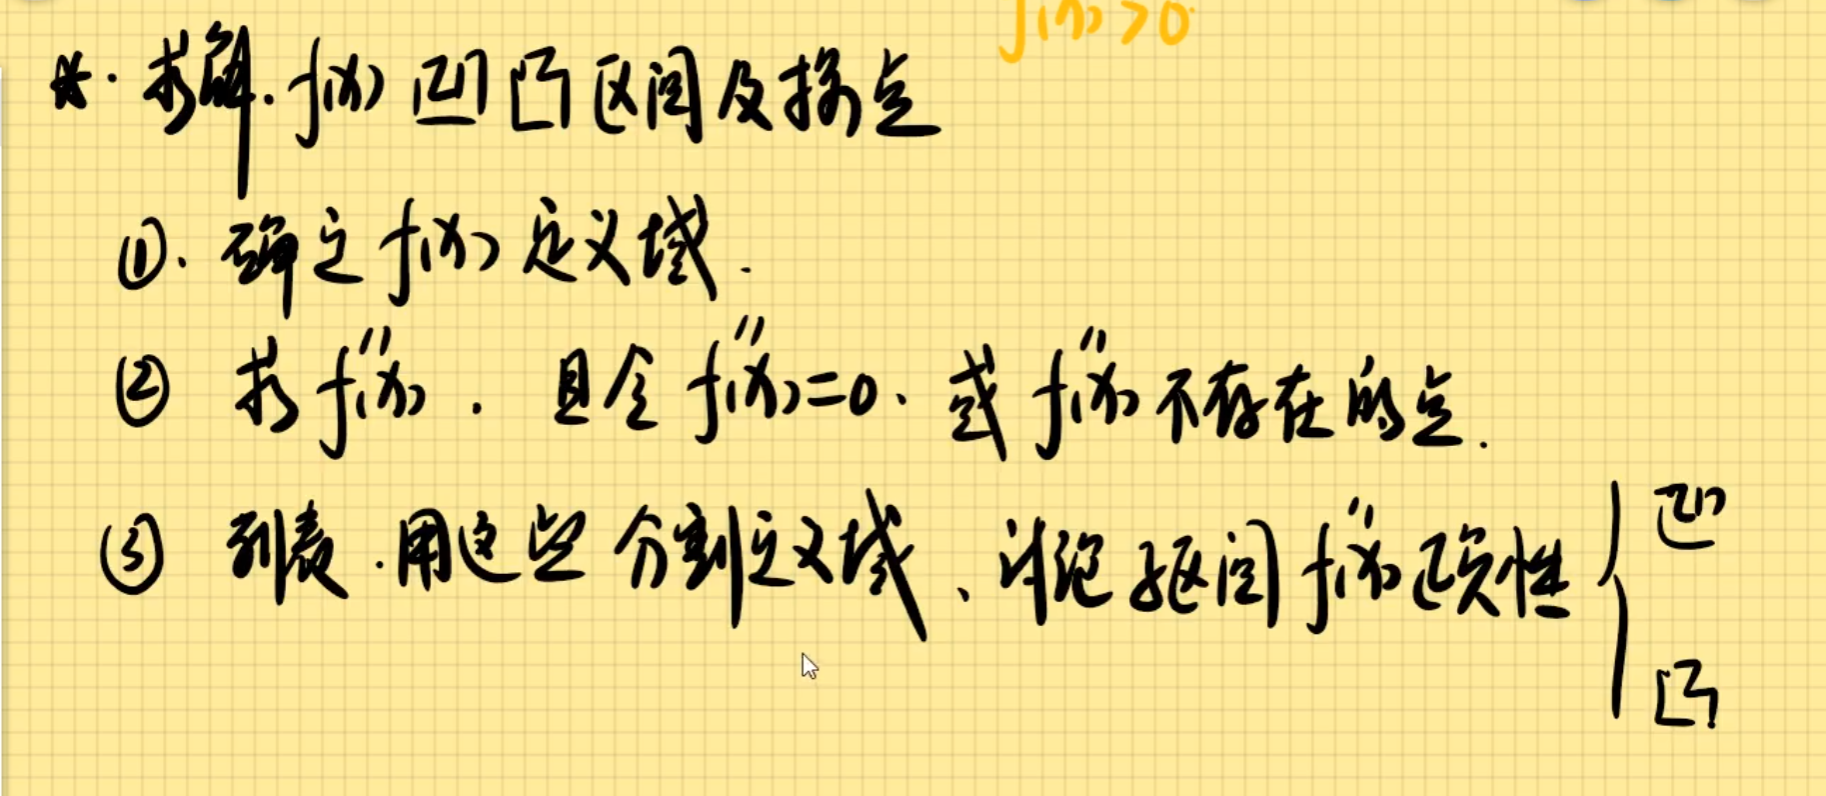 f(x)>0
*. 求解. f(x) 凹凸区间及拐点
①. 确定 f(x) 定义域.
② 求 f''(x). 且令 f''(x)=0. 或 f''(x) 不存在的点.
③ 列表.用这些 分割定义域、讨论 区间 f''(x) 正负性 { 凹
凸